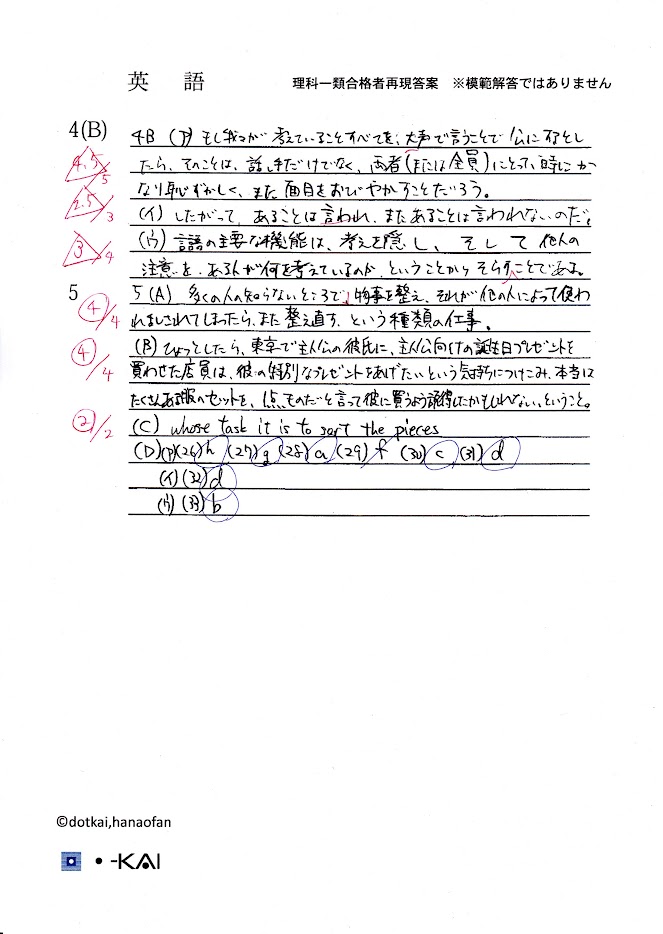 英 語 理科一類合格者再現答案 ※模範解答ではありません
4(B) 4B (ア) もし我々が考えていることすべてを、大声で言うことで公にすると
4.5/5 したら、そのことは、話し手だけでなく、両者(または全員)にとって、時にか
なり恥ずかしく、また面目をおびやかすことだろう。
2.5/3 (イ) したがって、あることは言われ、またあることは言われないのだ。
3/4 (ウ) 言語の主要な機能は、考えを隠し、そして他人の
注意を、ある人が何を考えているのか、ということからそらすことである。
5 5 (A) 多くの人の知らないところで、物事を整え、それが他の人によって使わ
4/4 れてしまったら、また整え直す、という種類の仕事。
4/4 (B) ひょっとしたら、東京で主人公の彼氏に、主人公向けの誕生日プレゼントを
買わせた店員は、彼の特別なプレゼントをあげたいという気持ちにつけこみ、本当は
たくさんある服のセットを、1点ものだと言って彼に買うよう説得したかもしれない、ということ。
2/2 (C) whose task it is to sort the pieces
(D) (ア) (26) h (27) g (28) a (29) f (30) c (31) d
(イ) (32) d
(ウ) (33) b
©dotkai,hanaofan
•-KAI